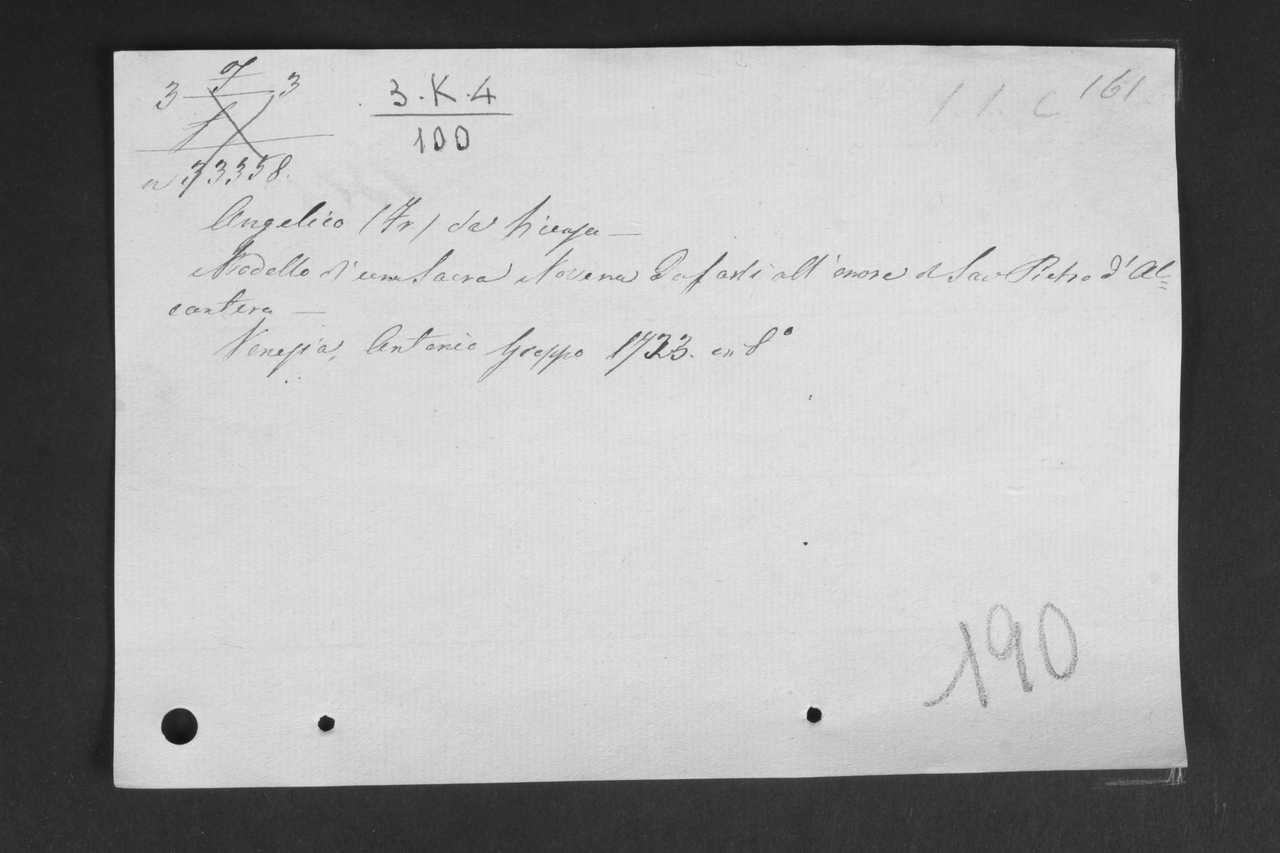 3 7 3
3.K.4
100
161
a 33358.
Angelico (Fr) da Vicenza —
Modello d'una Sacra Novena da farsi all'onore di San Pietro d'Al=
cantera —
Venezia, Antonio Groppo 1733. in 8°
190